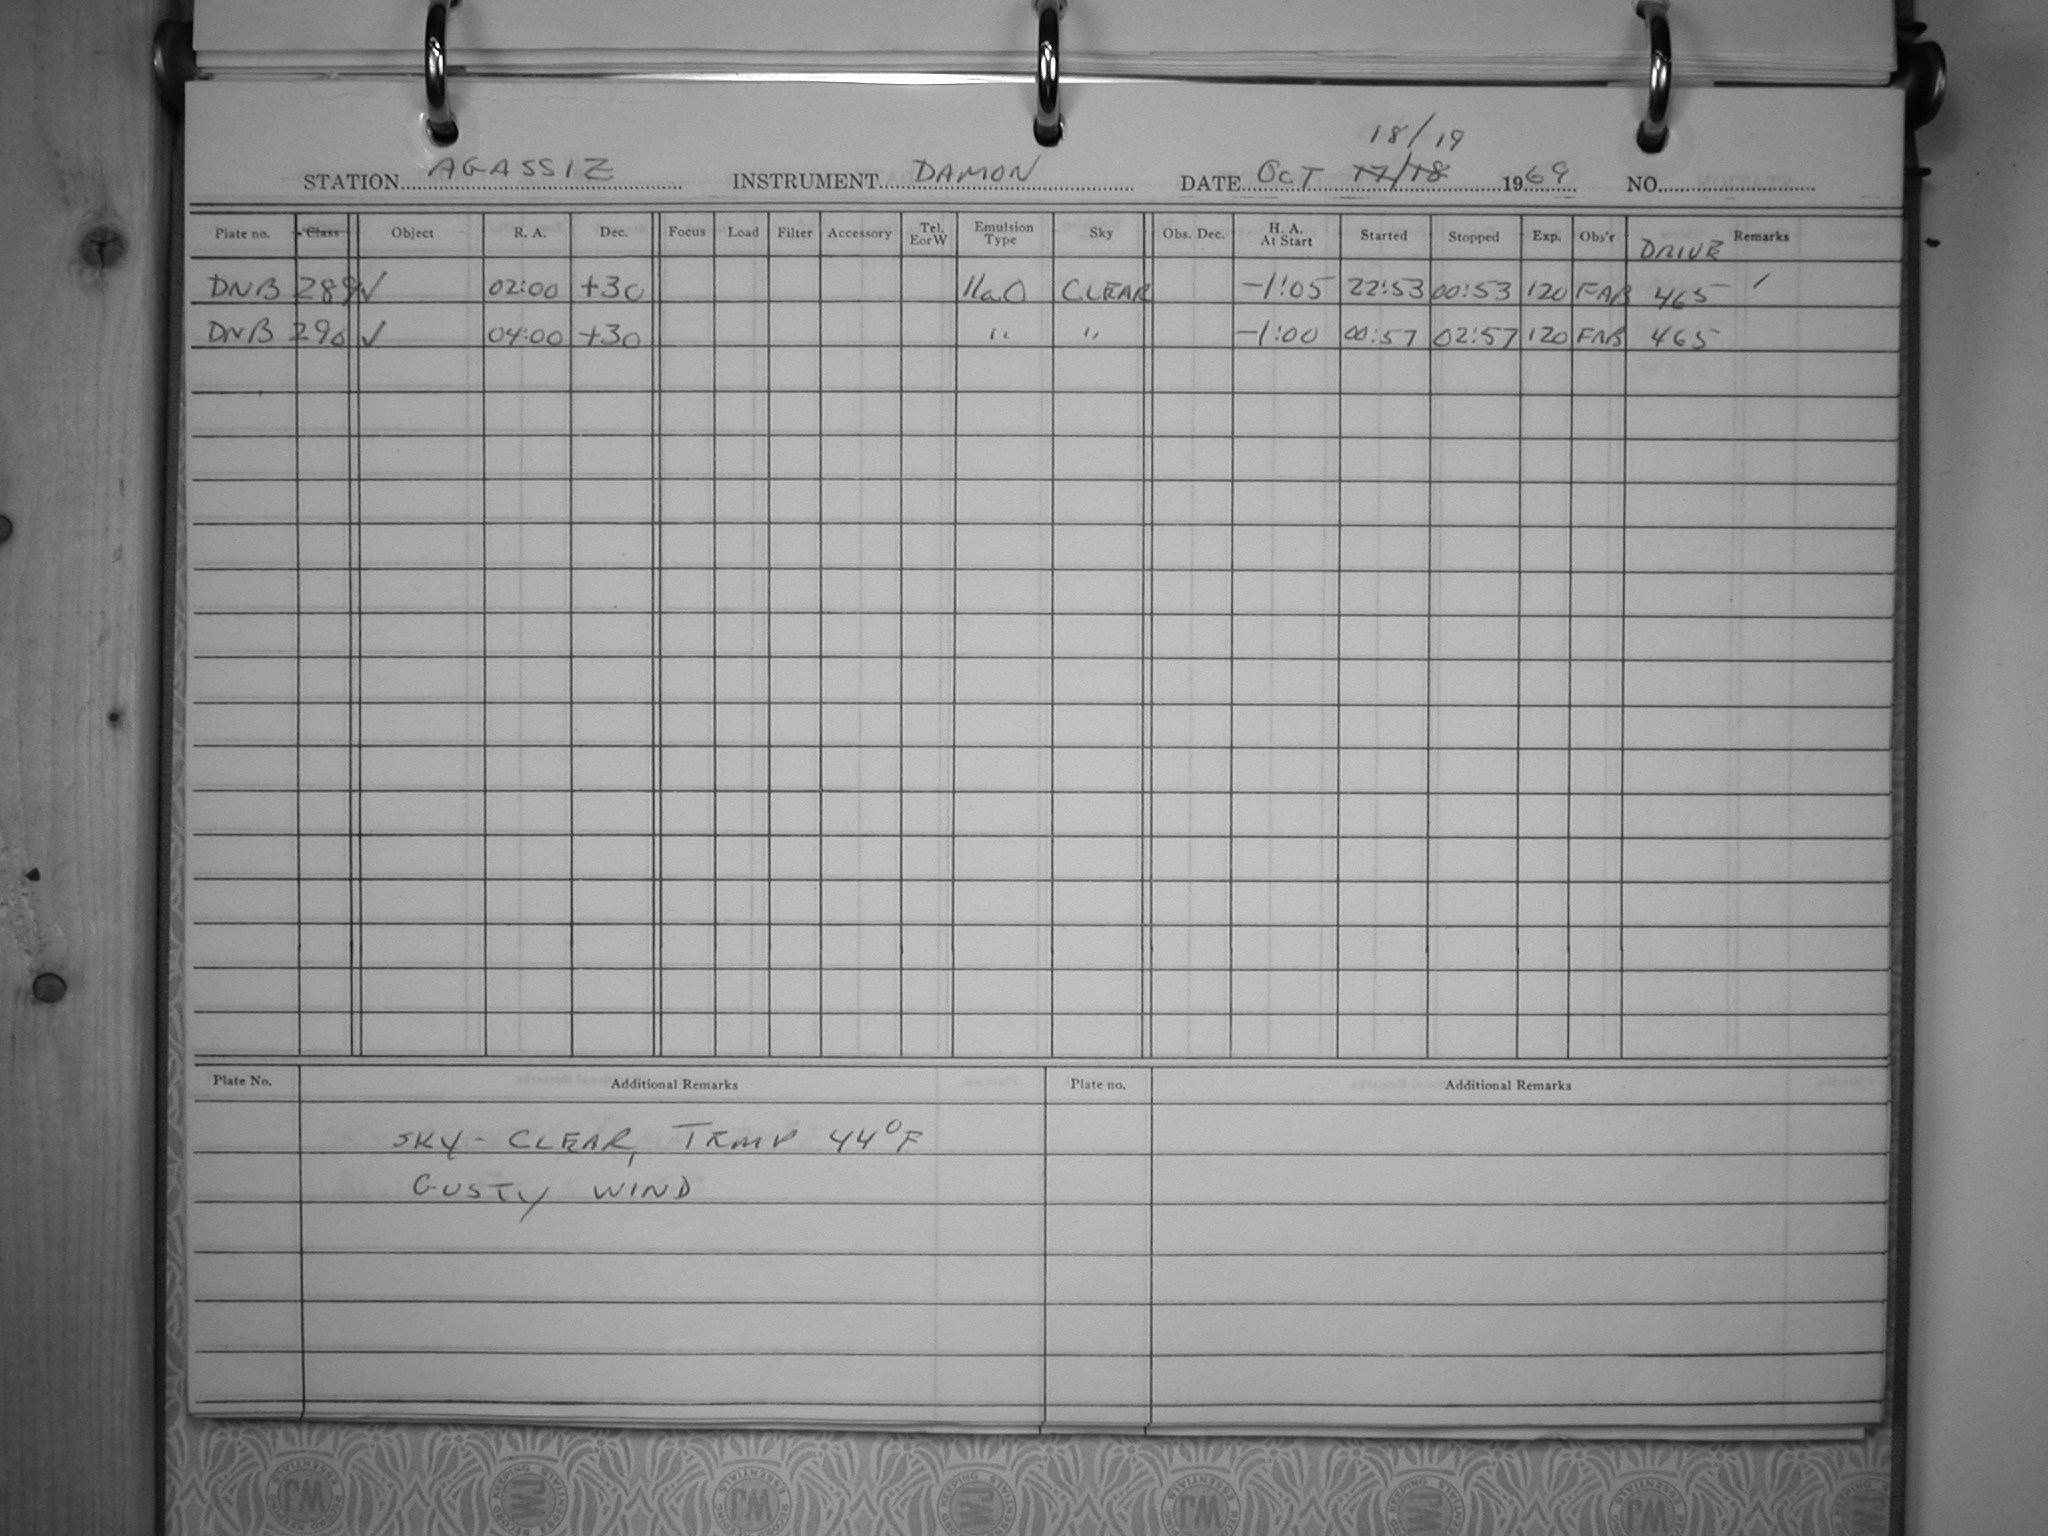 18/19
STATION AGASSIZ INSTRUMENT DAMON DATE OCT 17/18 1969 NO.
Plate no. Class Object R. A. Dec. Focus Load Filter Accessory Tel. E or W Emulsion Type Sky Obs. Dec. H. A. At Start Started Stopped Exp. Obs'r DRIVE Remarks
DNB 289 ✓ 02:00 +30 IIaO CLEAR -1:05 22:53 00:53 120 FAB 465
DNB 290 ✓ 04:00 +30 " " -1:00 00:57 02:57 120 FAB 465
Plate No. Additional Remarks Plate no. Additional Remarks
SKY - CLEAR, TEMP 44°F
GUSTY WIND